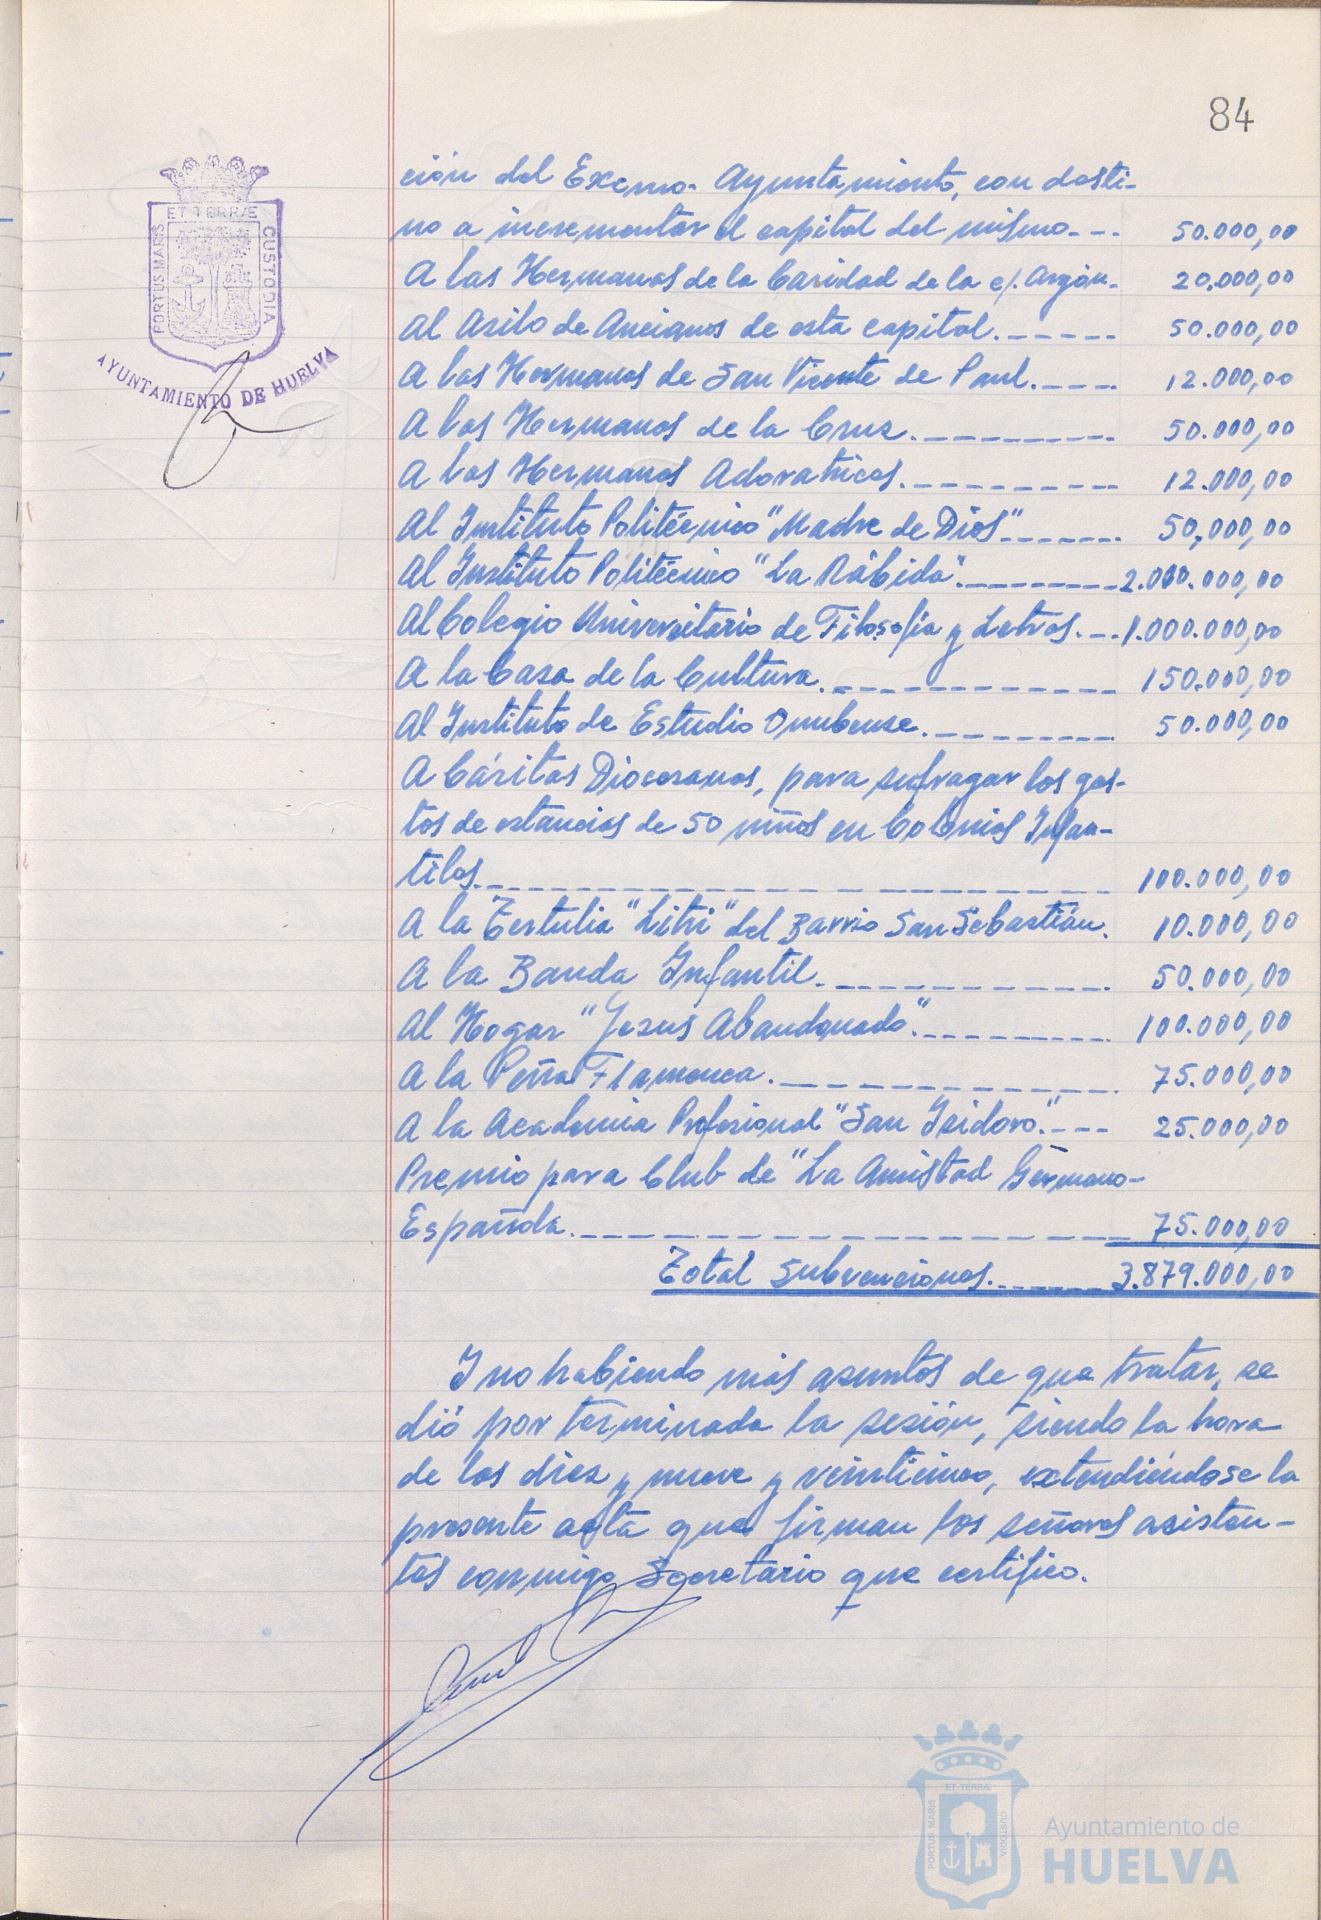 84
ET TERRÆ
PORTUS MARIS
CUSTODIA
AYUNTAMIENTO DE HUELVA
ción del Excmo. Ayuntamiento, con desti-
no a incrementar el capital del mismo--- 50.000,00
A las Hermanas de la Caridad de la c/. Aragón- 20.000,00
Al Asilo de Ancianos de esta capital.----- 50.000,00
A las Hermanas de San Vicente de Paul.---- 12.000,00
A las Hermanas de la Cruz.--------- 50.000,00
A las Hermanas Adoratrices.--------- 12.000,00
Al Instituto Politécnico "Madre de Dios"------- 50,000,00
Al Instituto Politécnico "La Rábida".-------- 2.000.000,00
Al Colegio Universitario de Filosofía y Letras.-- 1.000.000,00
A la Casa de la Cultura.------------ 150.000,00
Al Instituto de Estudio Onubense.--------- 50.000,00
A Cáritas Diocesanas, para sufragar los gas-
tos de estancias de 50 niños en Colonias Infan-
tiles.------------------------- 100.000,00
A la Tertulia "Litri" del Barrio San Sebastián. 10.000,00
A la Banda Infantil.------------ 50.000,00
Al Hogar "Jesus Abandonado".--------- 100.000,00
A la Peña Flamenca.------------- 75.000,00
A la Academia Profesional "San Isidoro."--- 25.000,00
Premio para Club de "La Amistad Germano-
Española.-------------------- 75.000,00
Total Subvenciones.------ 3.879.000,00
Y no habiendo más asuntos de que tratar, se
dió por terminada la sesión, siendo la hora
de las diez y nueve y veinticinco, extendiéndose la
presente acta que firman los señores asisten-
tes conmigo Secretario que certifico.
ET TERRÆ
PORTUS MARIS
CUSTODIA
Ayuntamiento de
HUELVA